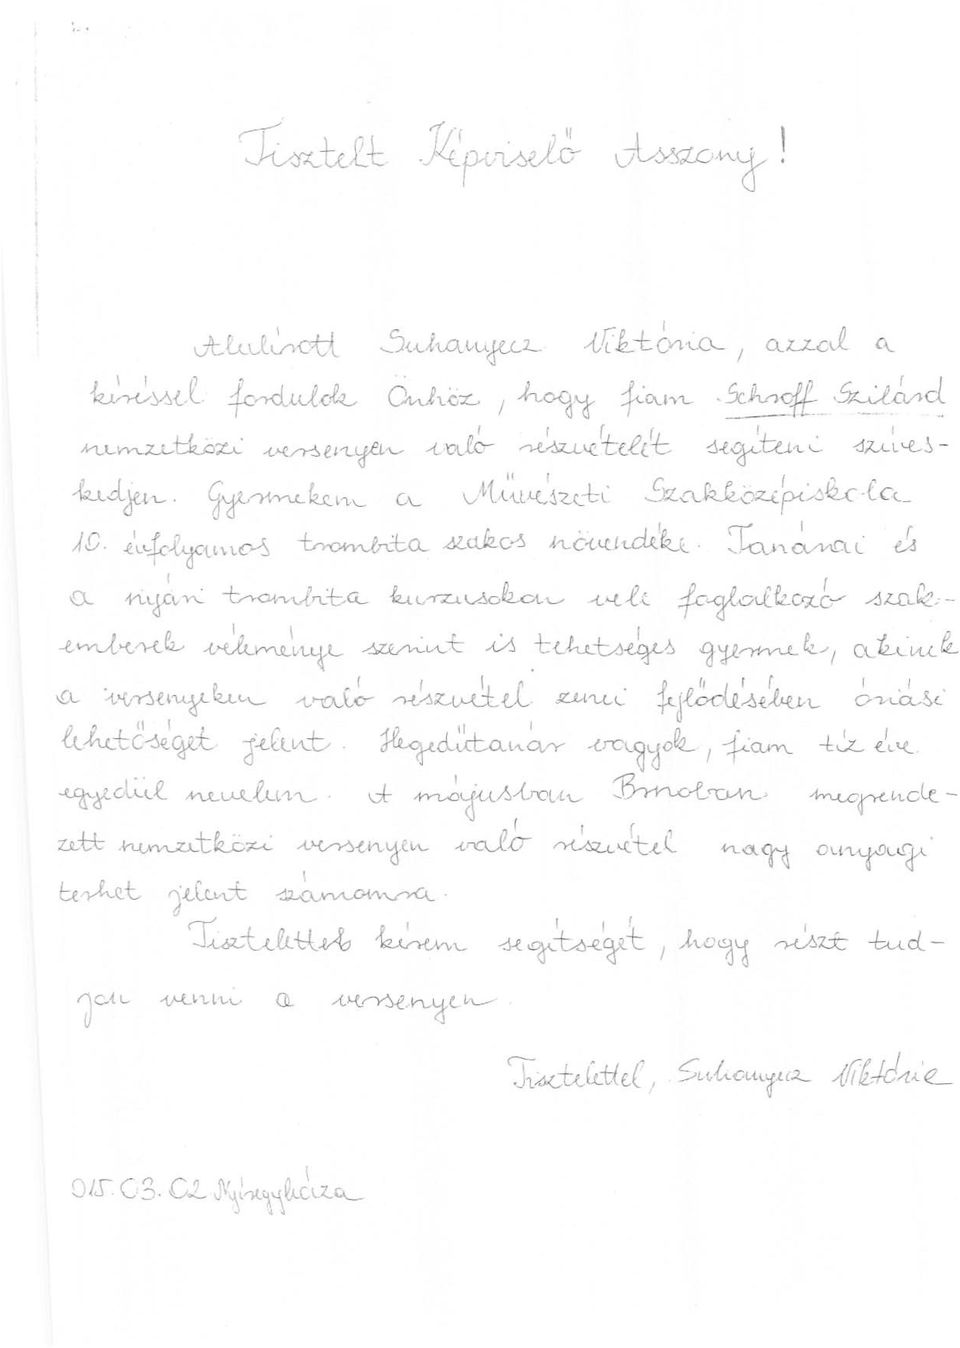 Tisztelt Képviselő Asszony!
Alulírott Suhanyecz Viktória, azzal a
kéréssel fordulok Önhöz, hogy fiam Schroff Szilárd
nemzetközi versenyen való részvételét segíteni szíves-
kedjen. Gyermekem a Művészeti Szakközépiskola
10. évfolyamos trombita szakos növendéke. Tanárai és
a nyári trombita kurzusokon vele foglalkozó szak-
emberek véleménye szerint is tehetséges gyermek, akinek
a versenyeken való részvétel zenei fejlődésében óriási
lehetőséget jelent. Hegedűtanár vagyok, fiam tíz éve
egyedül nevelem. A májusban Brnoban megrende-
zett nemzetközi versenyen való részvétel nagy anyagi
terhet jelent számomra.
Tisztelettel kérem segítségét, hogy részt tud-
jon venni a versenyen.
Tisztelettel, Suhanyecz Viktória
015.03.02 Nyíregyháza